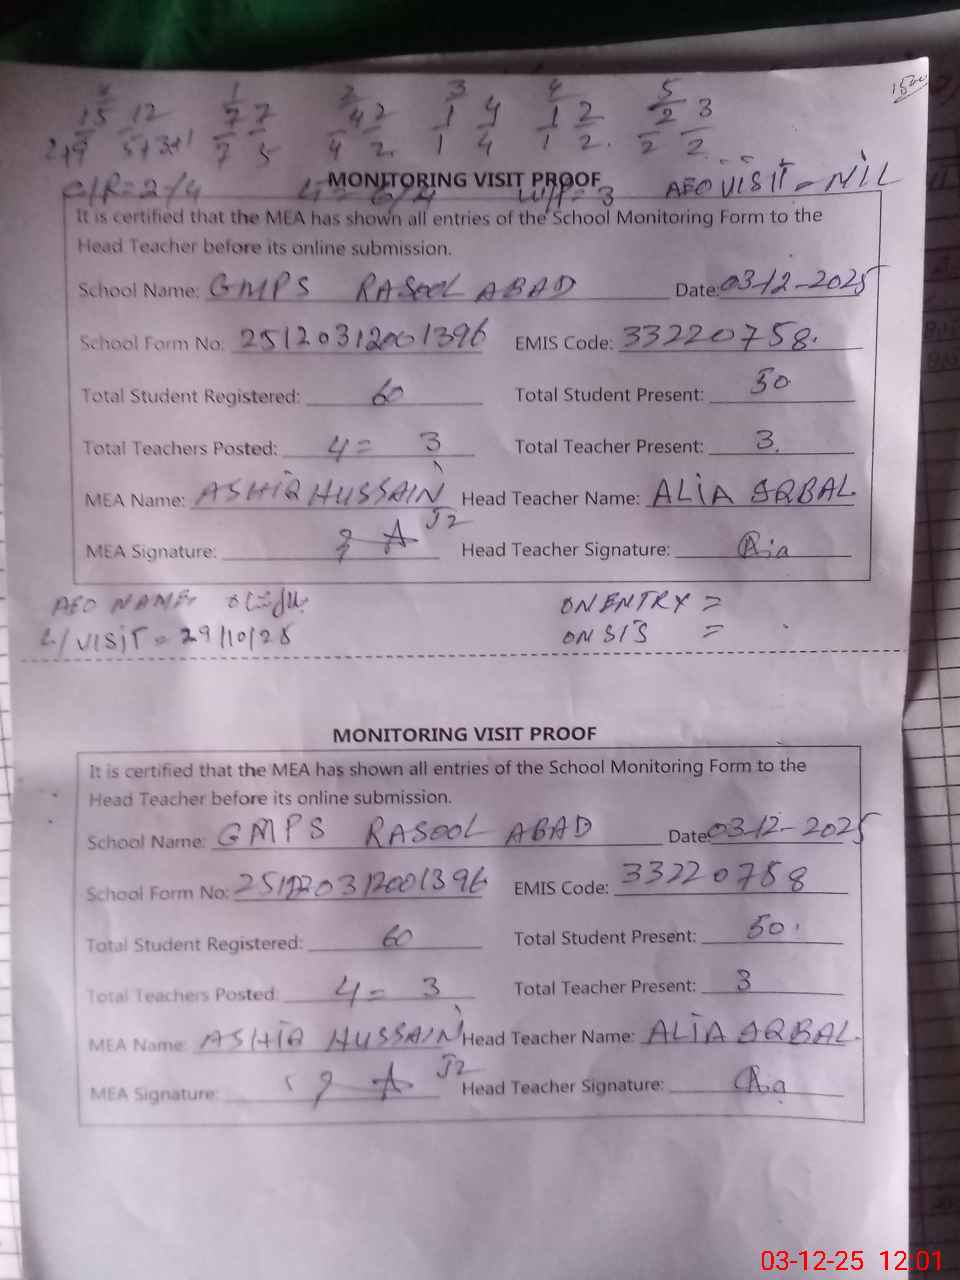 1500
4 1 2 3 4 5
15 12 7 7 4 2 1 4 1 2 2 3
2+9 5+3+1 7 5 4 2. 1 4 1 2. 2 2
C/R=2/4 L= 6/4 = 3 AEO VISIT = NIL
MONITORING VISIT PROOF
It is certified that the MEA has shown all entries of the School Monitoring Form to the
Head Teacher before its online submission.
School Name: GMPS RASOOL ABAD Date: 03-12-2025
School Form No: 25120312001396 EMIS Code: 33220758.
Total Student Registered: 60 Total Student Present: 50
Total Teachers Posted: 4= 3 Total Teacher Present: 3.
MEA Name: ASHIQ HUSSAIN Head Teacher Name: ALIA IQBAL
MEA Signature: Head Teacher Signature:
AEO NAME: ON ENTRY =
L/VISIT = 29/10/25 ON SIS =
MONITORING VISIT PROOF
It is certified that the MEA has shown all entries of the School Monitoring Form to the
Head Teacher before its online submission.
School Name: GMPS RASOOL ABAD Date: 03-12-2025
School Form No: 25120312001396 EMIS Code: 33220758
Total Student Registered: 60 Total Student Present: 50.
Total Teachers Posted: 4= 3 Total Teacher Present: 3
MEA Name: ASHIQ HUSSAIN Head Teacher Name: ALIA IQBAL.
MEA Signature: Head Teacher Signature:
03-12-25 12:01